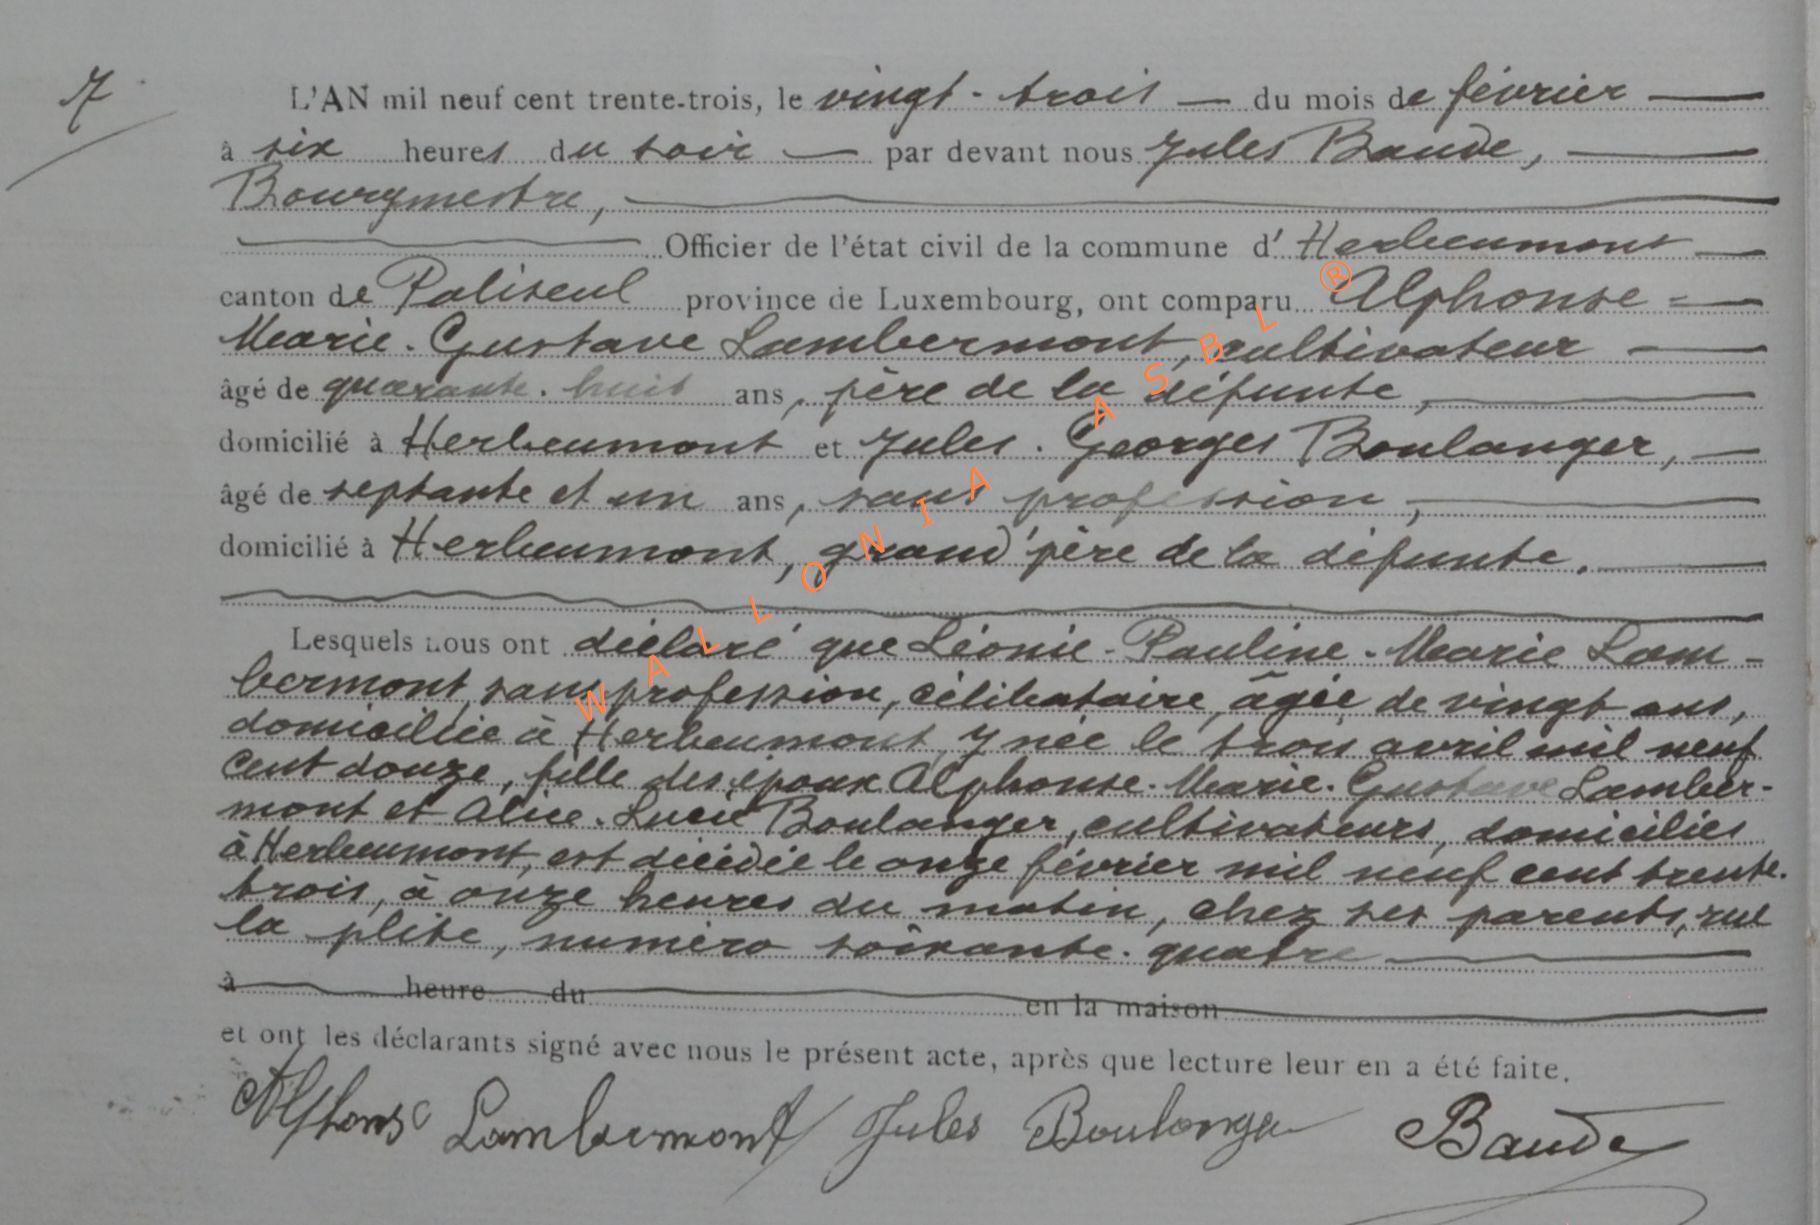 7
L'AN mil neuf cent trente-trois, le vingt-trois du mois de février
à six heures du soir par devant nous Jules Baude,
Bourgmestre,
Officier de l'état civil de la commune d'Herbeumont
canton de Paliseul province de Luxembourg, ont comparu Alphonse-
Marie-Gustave Lambermont, cultivateur
âgé de quarante-huit ans, père de la défunte,
domicilié à Herbeumont et Jules-Georges Boulanger,
âgé de septante et un ans, sans profession,
domicilié à Herbeumont, grand'père de la défunte.
Lesquels nous ont déclaré que Léonie-Pauline-Marie Lam-
bermont, sans profession, célibataire, âgée de vingt ans,
domiciliée à Herbeumont, y née le trois avril mil neuf
cent douze, fille des époux Alphonse-Marie-Gustave Lamber-
mont et Alice-Lucie Boulanger, cultivateurs, domiciliés
à Herbeumont, est décédée le onze février mil neuf cent trente-
trois, à onze heures du matin, chez ses parents, rue
la plite, numéro soixante-quatre
à heure du en la maison
et ont les déclarants signé avec nous le présent acte, après que lecture leur en a été faite.
Alphonse Lambermont Jules Boulanger Baude
WALLONIA ASBL ®